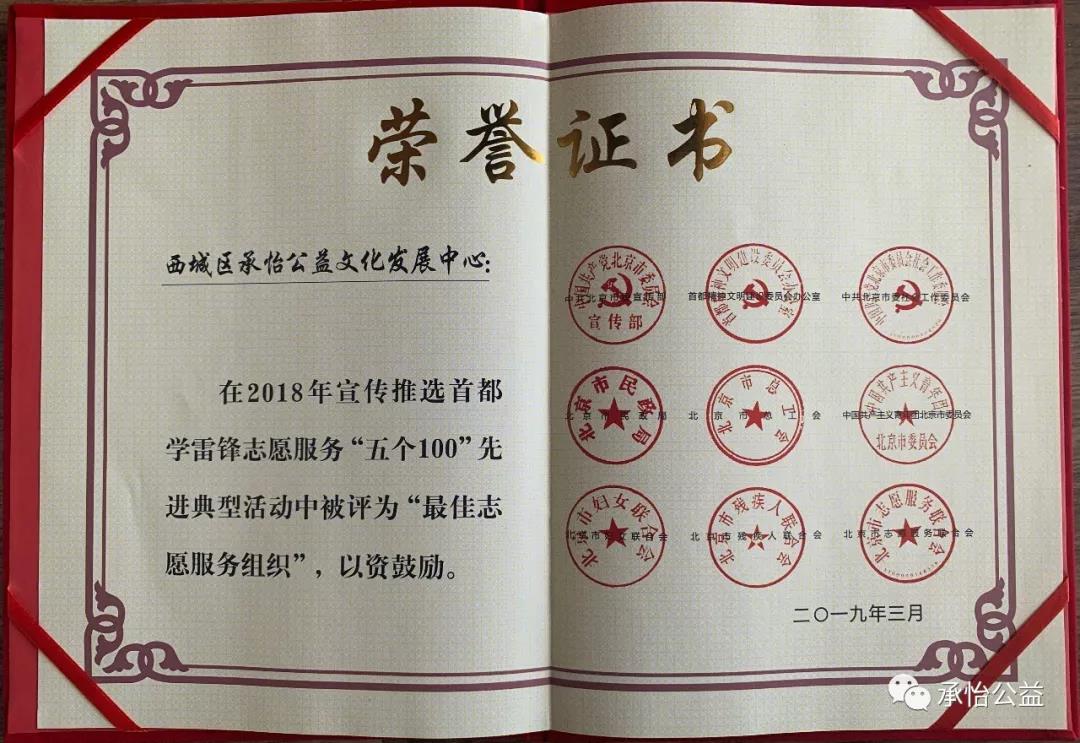 荣誉证书
西城区承怡公益文化发展中心：
在2018年宣传推选首都
学雷锋志愿服务“五个100”先
进典型活动中被评为“最佳志
愿服务组织”，以资鼓励。
中国共产党北京市委员会
宣传部
中共北京市委宣传部
首都精神文明建设委员会办公室
首都精神文明建设委员会办公室
中国共产党北京市委员会社会工作委员会
中共北京市委社会工作委员会
北京市民政局
北京市民政局
北京市总工会
北京市总工会
中国共产主义青年团
北京市委员会
中国共产主义青年团北京市委员会
北京市妇女联合会
北京市妇女联合会
北京市残疾人联合会
北京市残疾人联合会
北京市志愿服务联合会
北京市志愿服务联合会
二〇一九年三月
承怡公益